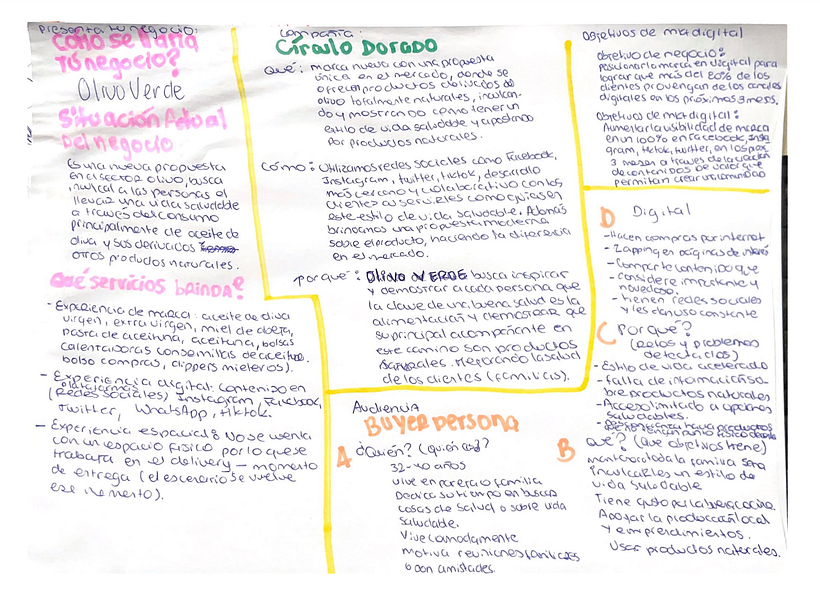 Presenta tu negocio:
Cómo se llama
tú negocio?
Olivo Verde
Situación Actual
Del negocio
Es una nueva propuesta
en el sector olivo, busca
inculcar a las personas al
llevar una vida saludable
a través del consumo
principalmente de aceite de
oliva y sus derivados
otros productos naturales.
Qué servicios brinda?
- Experiencia de marca: aceite de oliva
virgen, extra virgen, miel de abeja,
pasta de aceituna, aceituna, bolsas
calentadoras con semillas de aceituna.
bolso compras, clippers mieleros).
- Experiencia digital: contenido en
plataformas
(Redes sociales) Instagram, Facebook,
Twitter, WhatsApp, tiktok.
- Experiencia espacial: No se cuenta
con un espacio físico por lo que se
trabaja en el delivery – momento
de entrega (el escenario se vuelve
ese momento).
compañía:
Círculo Dorado
Qué: marca nueva con una propuesta
única en el mercado, donde se
ofrecen productos derivados de
olivo totalmente naturales, inculcan-
do y mostrando cómo tener un
estilo de vida saludable y apostando
por productos naturales.
cómo: Utilizamos redes sociales como Facebook,
Instagram, twitter, tiktok, desarrollo
más cercano y colaborativo con los
clientes
este estilo de vida saludable. Además
brindamos una propuesta moderna
sobre el producto, haciendo la diferencia
en el mercado.
porqué: OLIVO VERDE busca inspirar
y demostrar a cada persona que
la clave de una buena salud es la
alimentación y demostrar que
su principal acompañante en
este camino son productos
naturales. Mejorando la salud
de los clientes (familias).
Audiencia
Buyer persona
A ¿Quién? (quién es?)
32-40 años
vive en pareja o familia
Dedica su tiempo en buscar
cosas de salud o sobre vida
saludable.
Vive comodamente
motiva reuniones familiares
o con amistades.
Objetivos de mkt digital
objetivo de negocio:
Posicionar la marca en digital para
lograr que más del 80% de los
clientes provengan de los canales
digitales en los próximos 3 meses.
Objetivo de mkt digital:
Aumentar la visibilidad de marca
en un 100% en Facebook, Insta
gram, tiktok, twitter, en los prox
3 meses a través de la creación
de contenidos de valor que
permitan crear una comunidad
D Digital
- Hacen compras por internet
- Zapping en páginas de interés
- Comparte contenido que
considere importante y
novedoso.
- tienen redes sociales
y les dan uso constante
C Porqué?
(Retos y problemas
detectados)
- Estilo de vida acelerado
- falta de información so-
bre productos naturales
- Acceso limitado a opciones
saludables.
B Qué? (Qué objetivos tiene)
mantener a toda la familia sana
Inculcarles un estilo de
vida saludable
Tiene gusto por la buena cocina.
Apoyar la producción local
y emprendimientos.
Usar productos naturales.